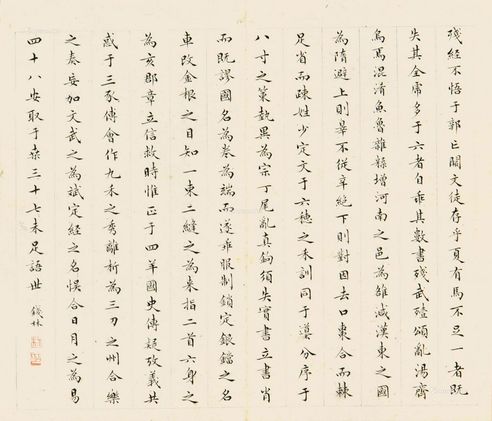 殘經不悟于郭亡闕文徒存乎夏有馬不足一者既
失其全虎多于六者自乖其數書殘武殪頌亂湯齊
烏焉混淆魚魯雜糅增河南之邑為雒減漢東之國
為隋避上則辠不從辛絕下則對因去口東合而棘
足省而疎姓少定文于六穗之禾訓同于䆃分序于
八寸之策執異為宗丁尾亂真鉤須失實書立書肖
而既謬國名為卷為端而遂乖服制鎖定銀鐺之名
車改金根之目知一東二縫之為來指二首六身之
為亥郡章立信救時惟正于四羊國史傳疑攷義共
惑于三豕傅會作九禾之秀離析為三刀之州合樂
之秦妄加文武之為斌定經之名悞合日月之為易
四十八安取于桒三十七未足語世 錢林